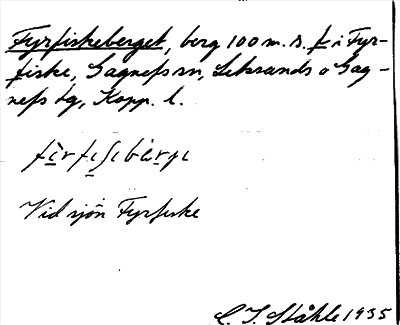 Fyrfiskeberget, berg 100 m. s. k i Fyr-
fiske, Gagnefs sn, Leksands o Gag-
nefs tg, Kopp. l.
Vid sjön Fyrfiske
C. I. Ståhle 1935